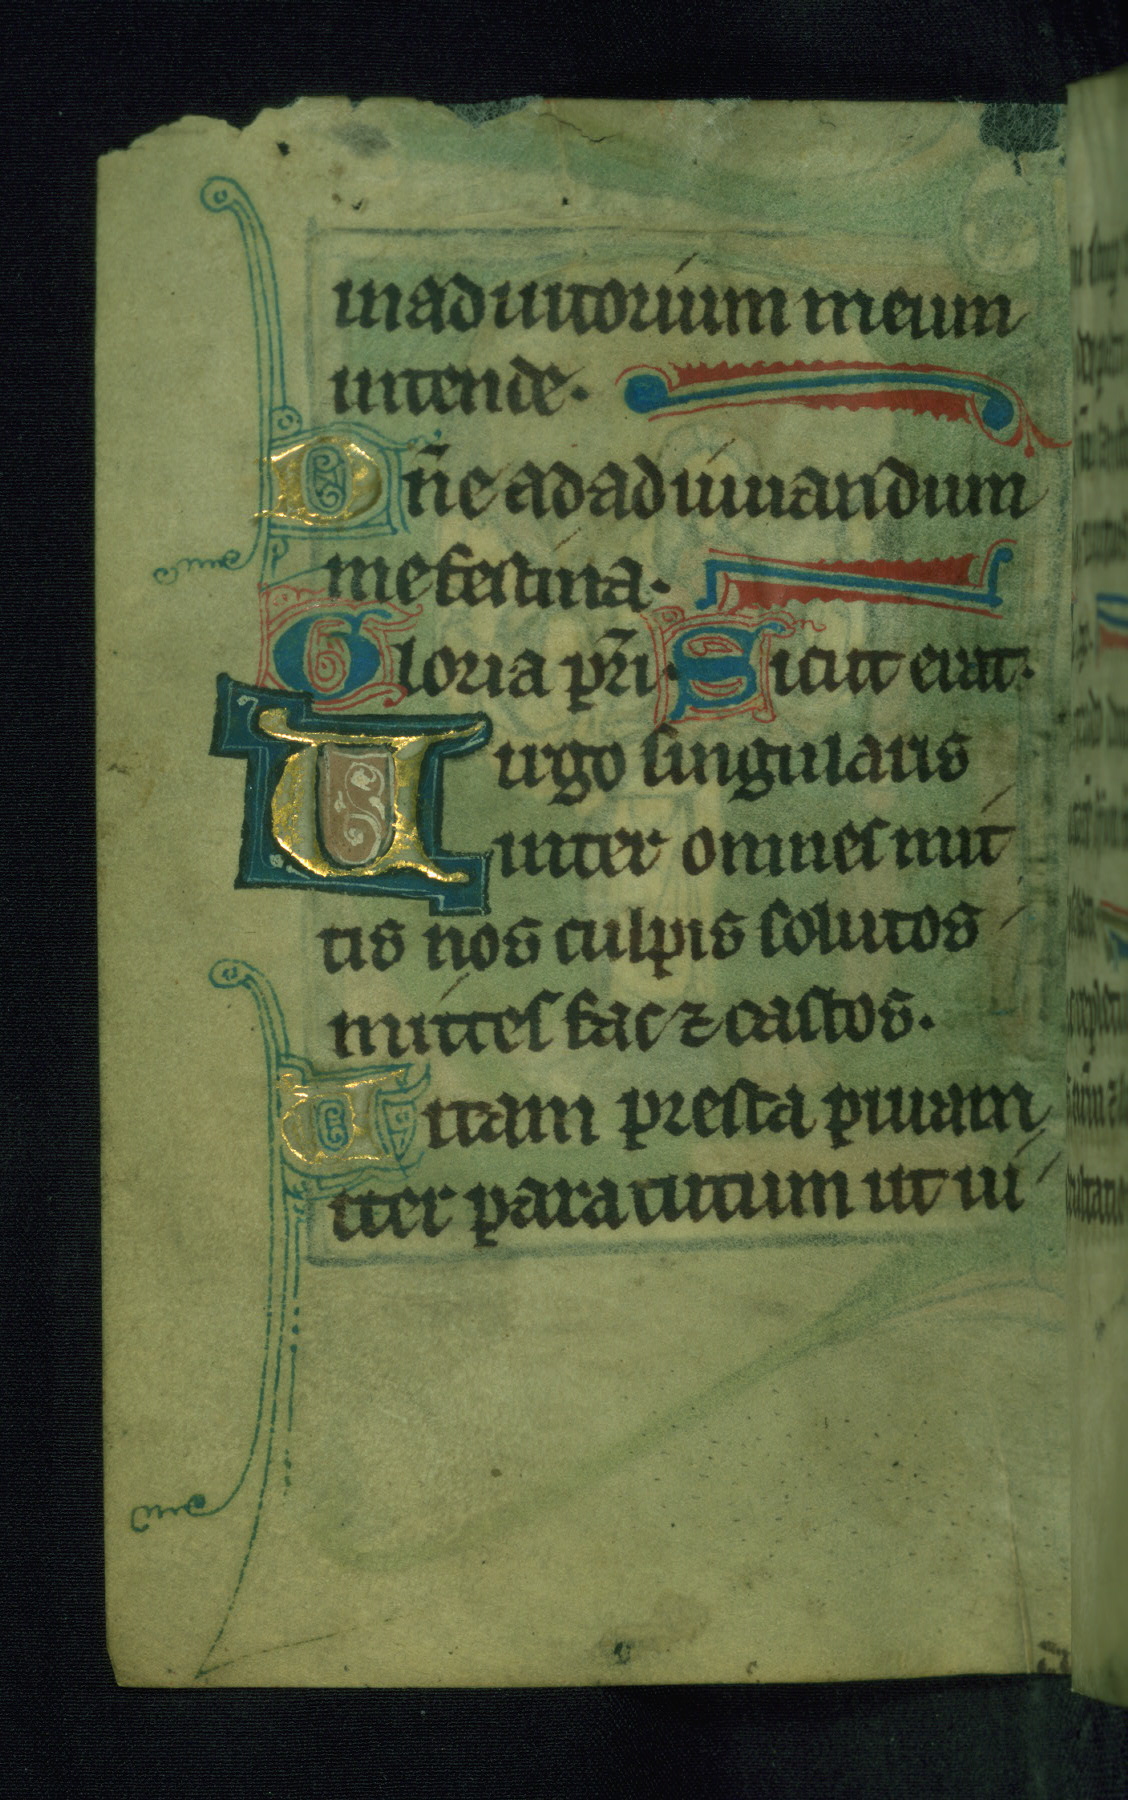 in adiutorium meum
intende.
Dñe ad adiuuandum
me festina.
Gloria pri. Sicut erat.
Uirgo singularis
inter omnes mit
tis nos culpis solutos
mittes fac ⁊ castos.
Uitam presta piuam
itter para tutum ut ui